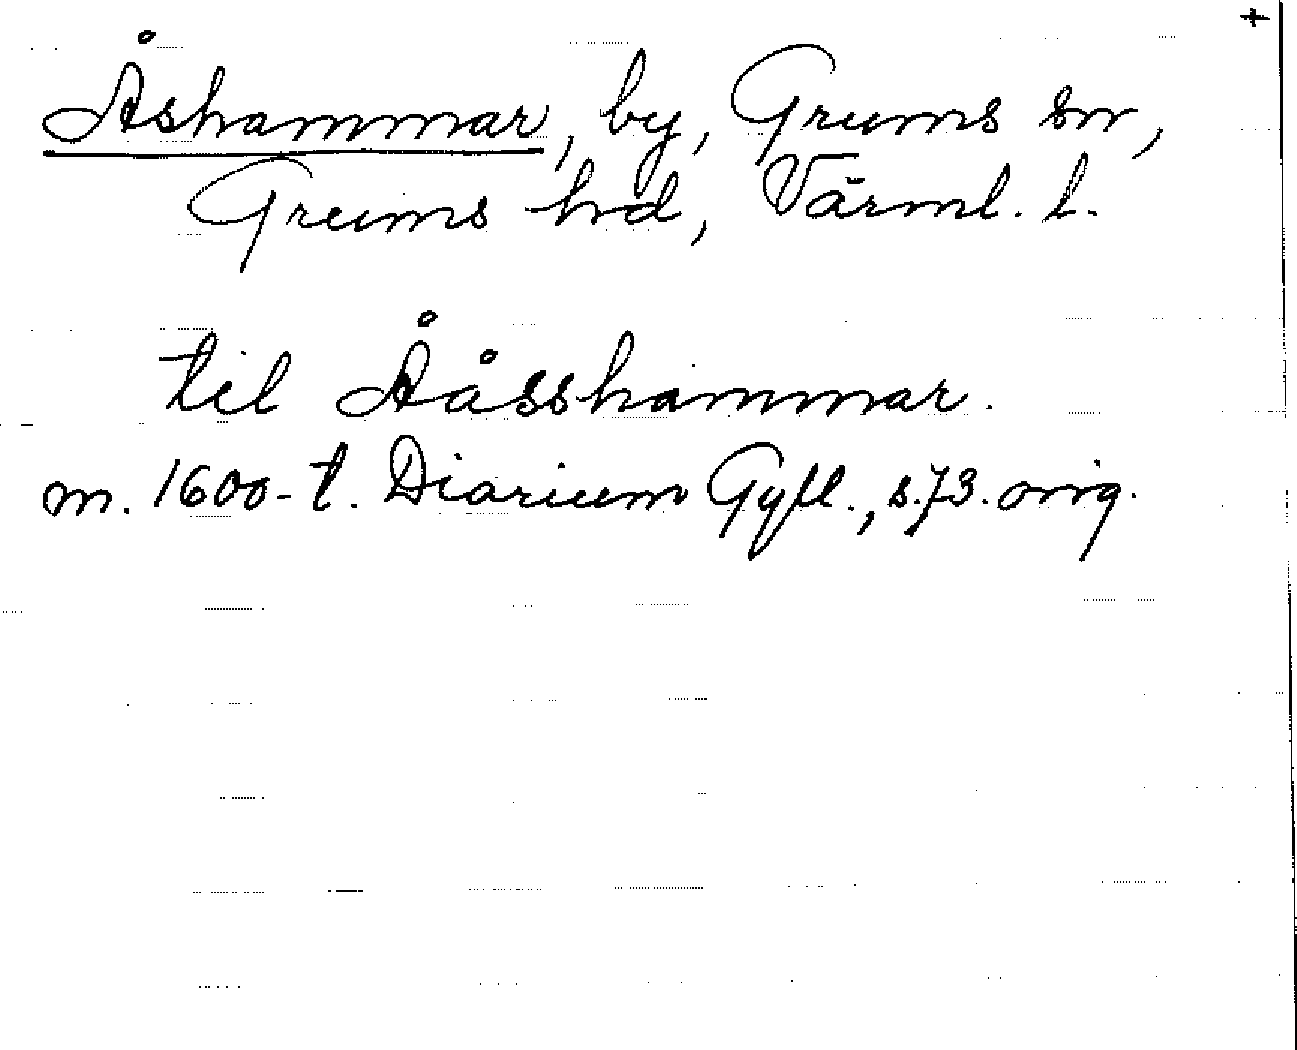 +
Åshammar, by, Grums sn,
Grums hd, Värml. l.
til Ååsshammar.
m. 1600-t. Diarium Gyll., s. 73. orig.